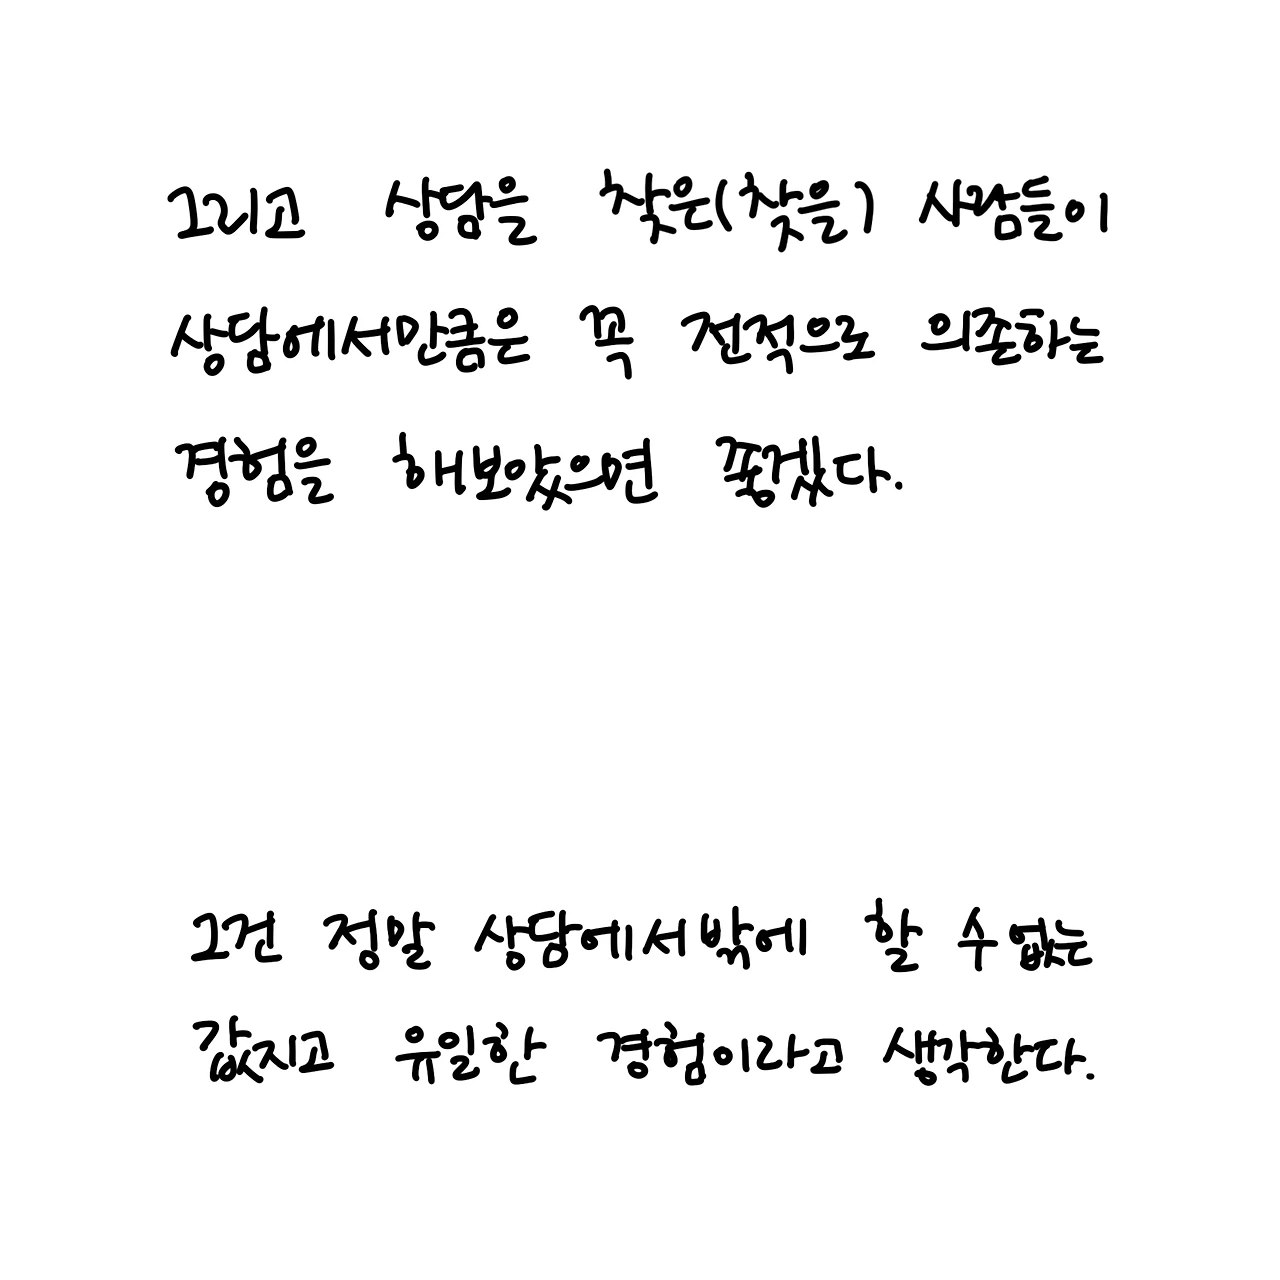 그리고 상담을 찾은(찾을) 사람들이
상담에서만큼은 꼭 전적으로 의존하는
경험을 해보았으면 좋겠다.
그건 정말 상담에서밖에 할 수 없는
값지고 유일한 경험이라고 생각한다.